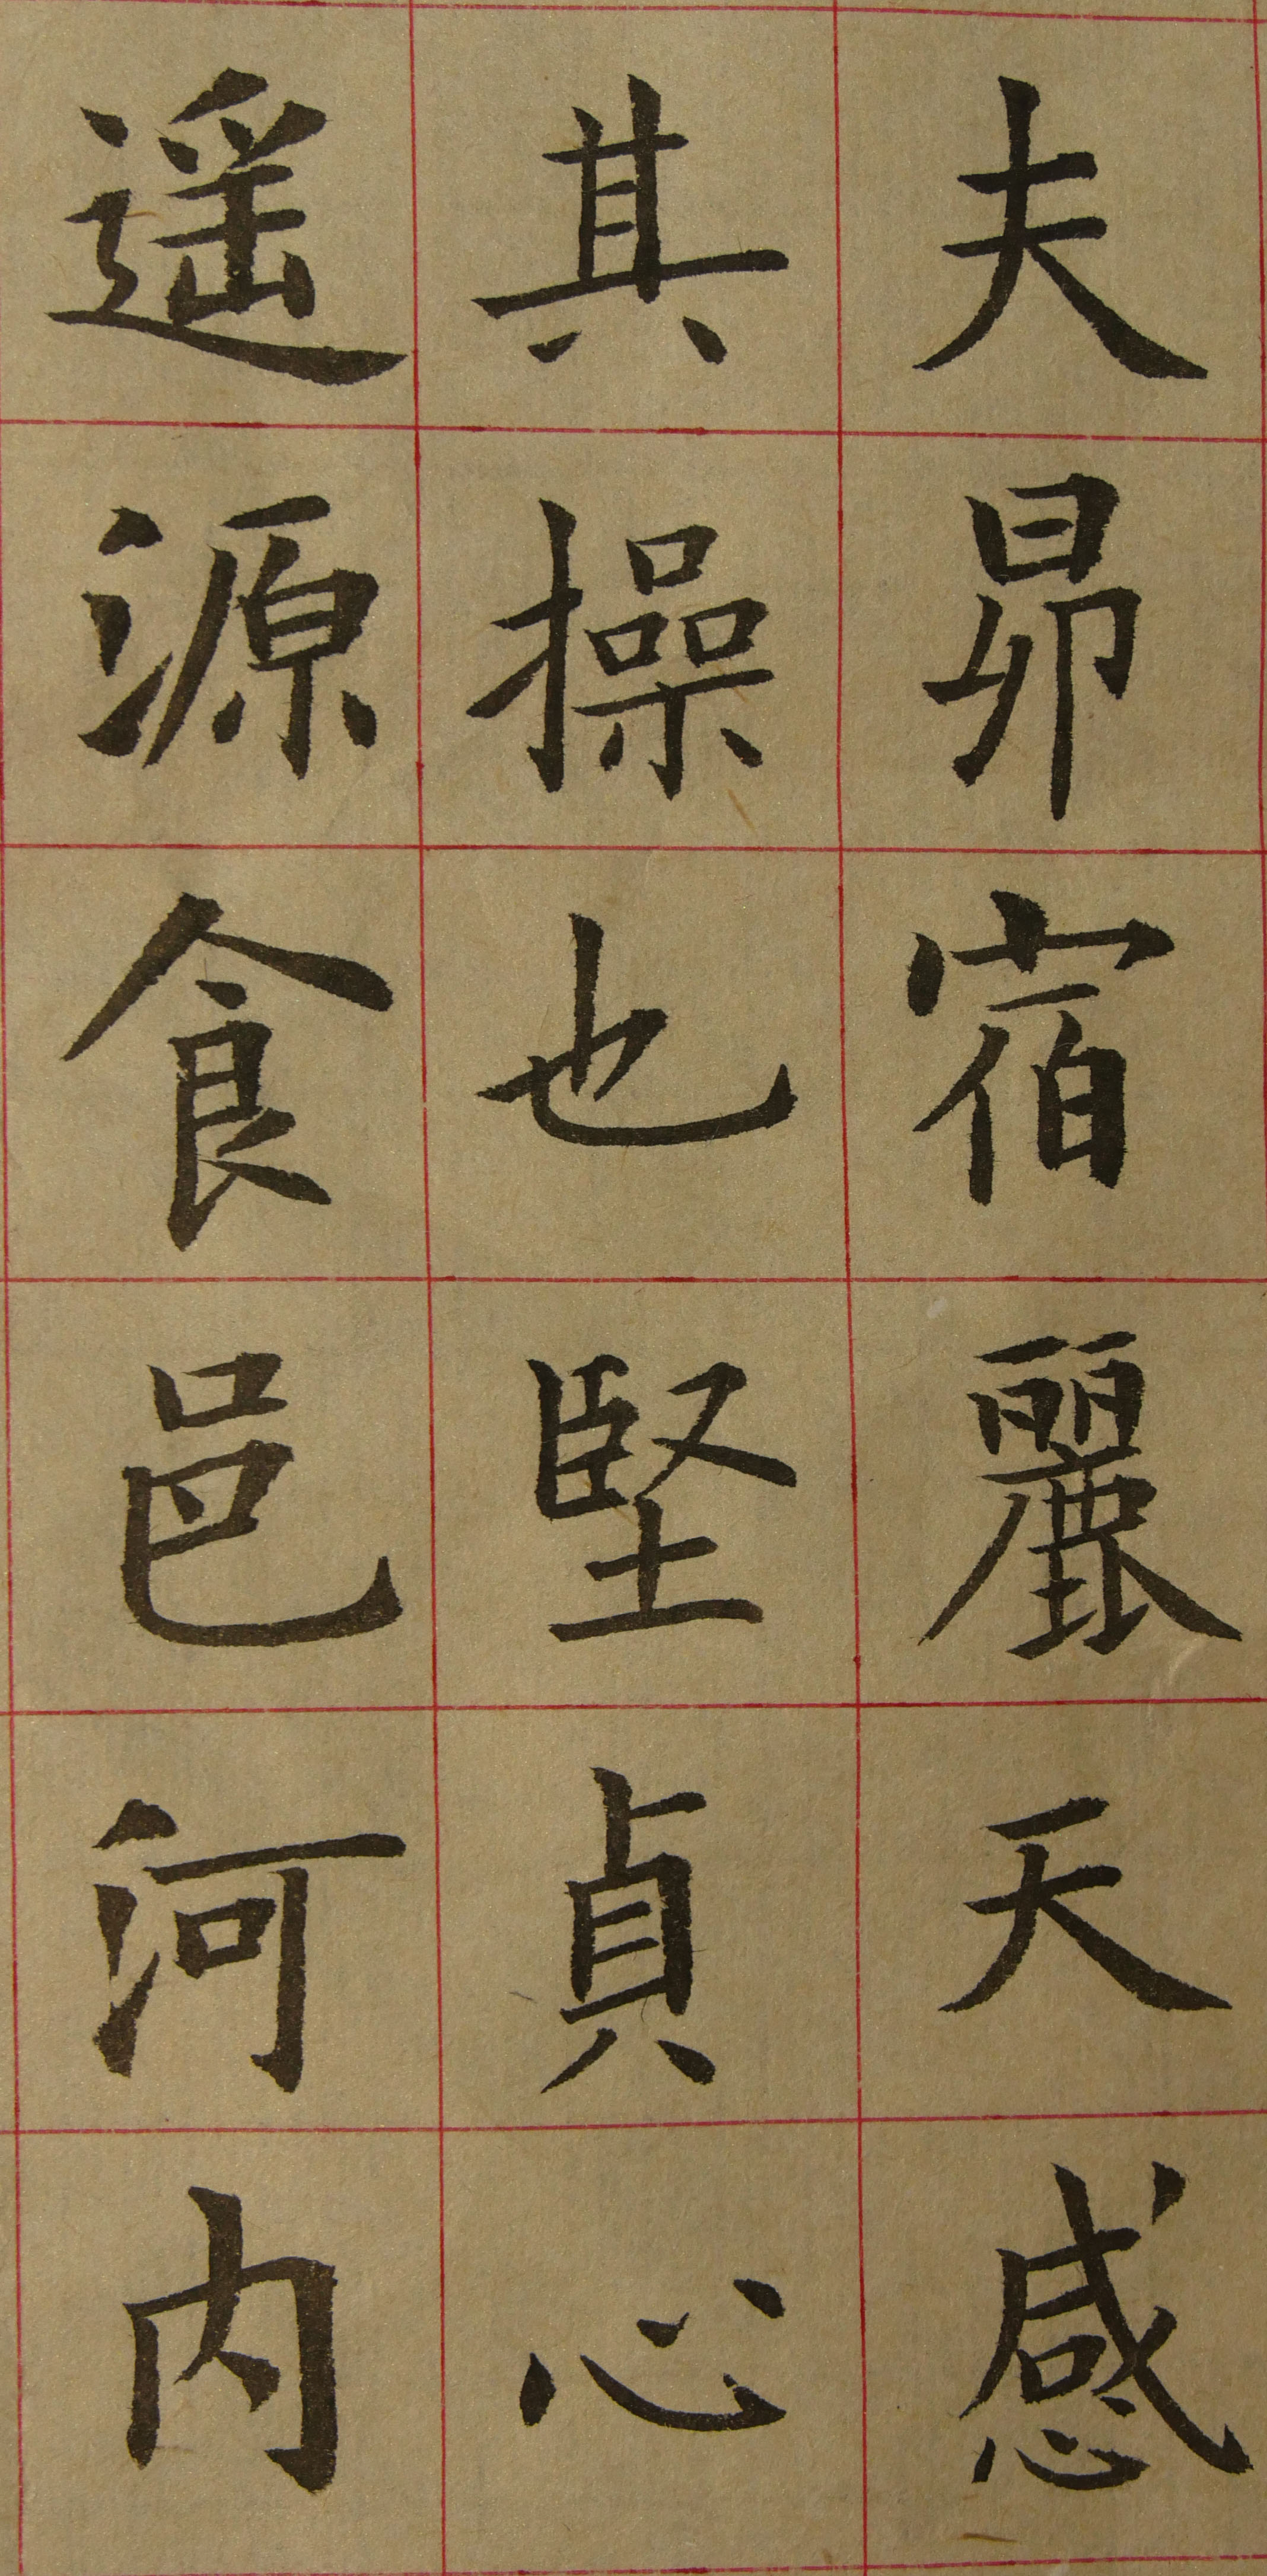 夫昴宿麗天感
其操也堅貞心
遥源食邑河内